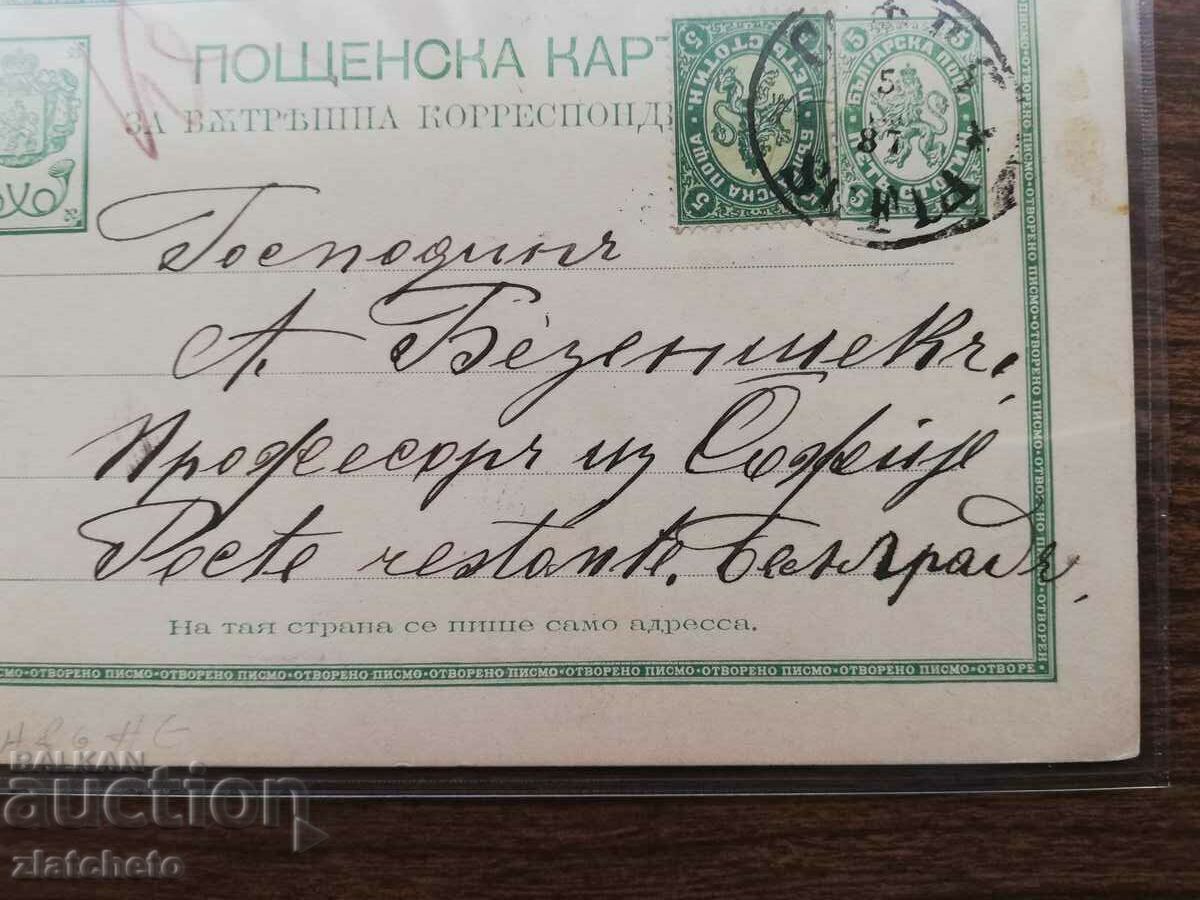 ПОЩЕНСКА КАР
ЗА ВѪТРѢШНА КОРРЕСПОНД
5 ПЕТЬ СТОТИНКИ БЪЛГАРСКА ПОЩА 5
5 БЪЛГАРСКА ПОЩА 5 ПЕТЬ СТОТИНКИ
СОФИЯ
5
87
Господинъ
А. Безеншекъ,
Професоръ из Софије
Poste restante. Белъградъ,
На тая страна се пише само адресса.
ОТВОРЕНО ПИСМО·ОТВОРЕНО ПИСМО·ОТВОРЕНО ПИСМО·ОТВОРЕНО ПИСМО·ОТВОРЕНО ПИСМО·ОТВОРЕНО ПИСМО·ОТВОРЕНО ПИСМО·ОТВОРЕ
BALKAN
auction
zlatcheto